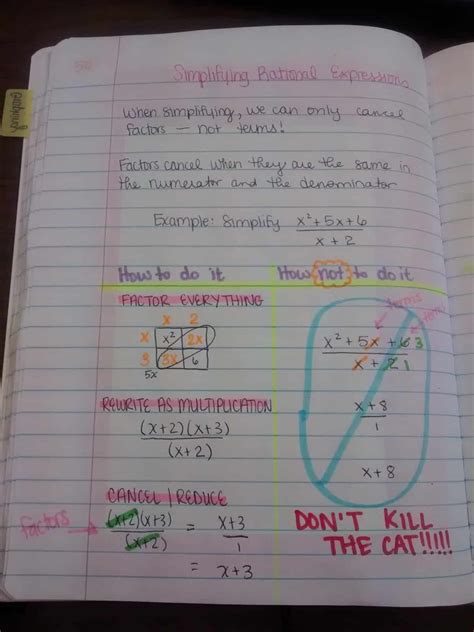 50
Simplifying Rational Expressions
When simplifying, we can only cancel
factors — not terms!
Factors cancel when they are the same in
the numerator and the denominator
Example: Simplify x²+5x+6
x+2
How to do it
FACTOR EVERYTHING
x 2
x x² 2x
3 3x 6
5x
REWRITE AS MULTIPLICATION
(x+2)(x+3)
(x+2)
CANCEL / REDUCE
factors (x+2)(x+3) = x+3
(x+2) 1
= x+3
How not to do it
terms
x² + 5x + 6 3
x + 2 1
x+8
1
x+8
DON'T KILL
THE CAT!!!!!